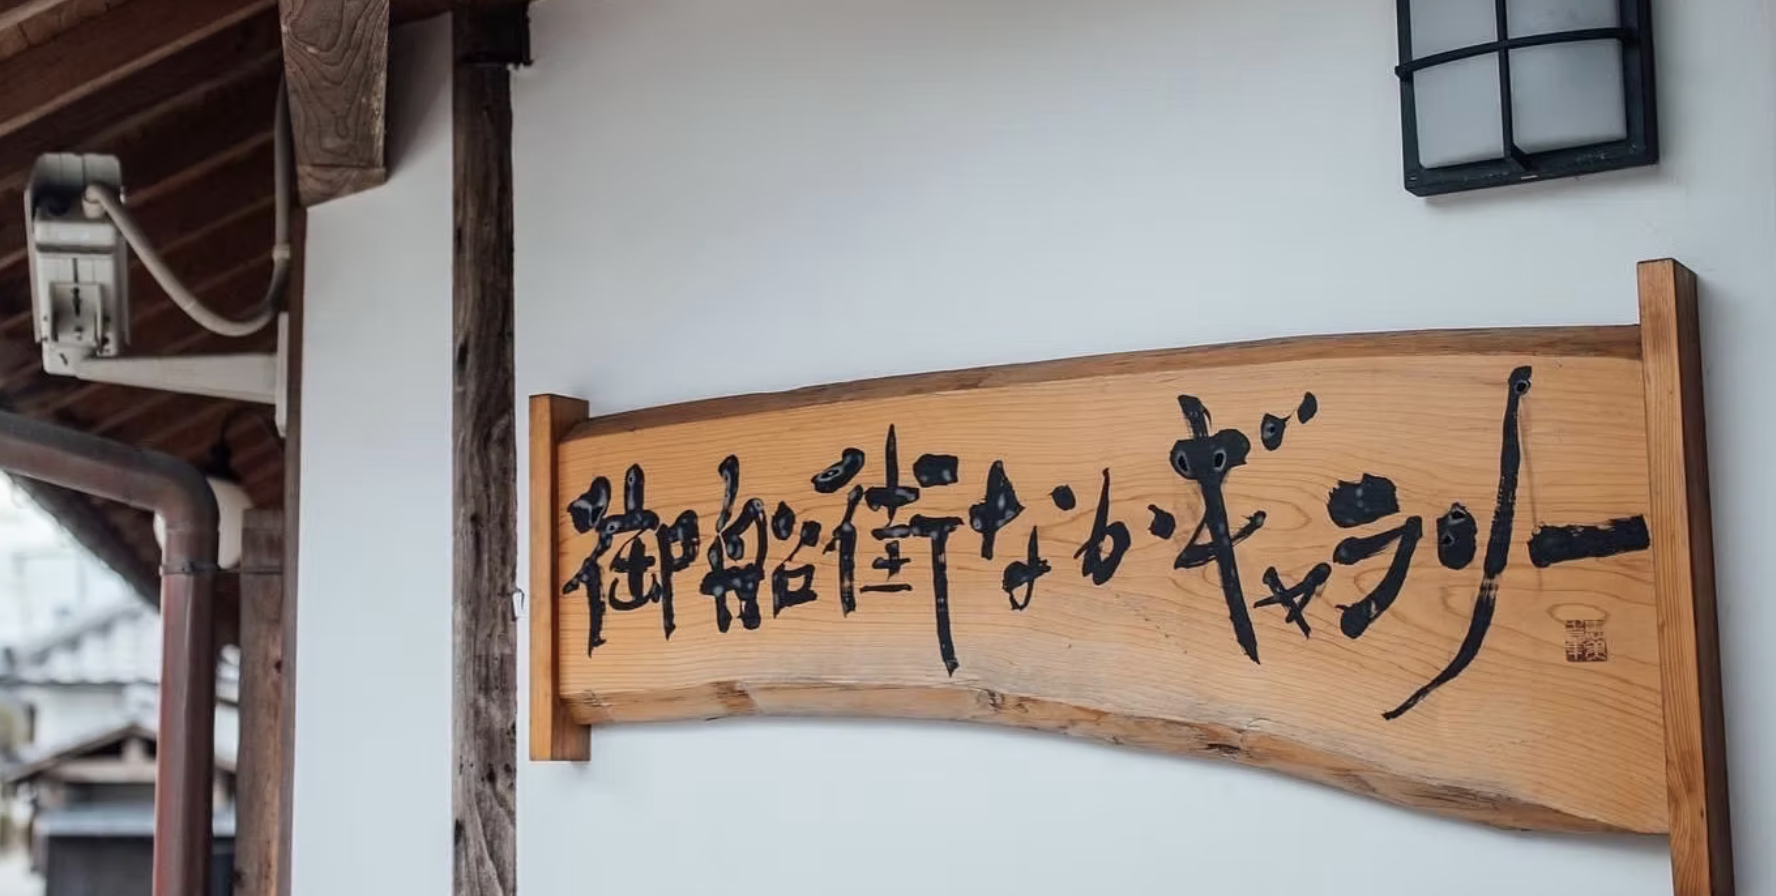 御船街なかギャラリー